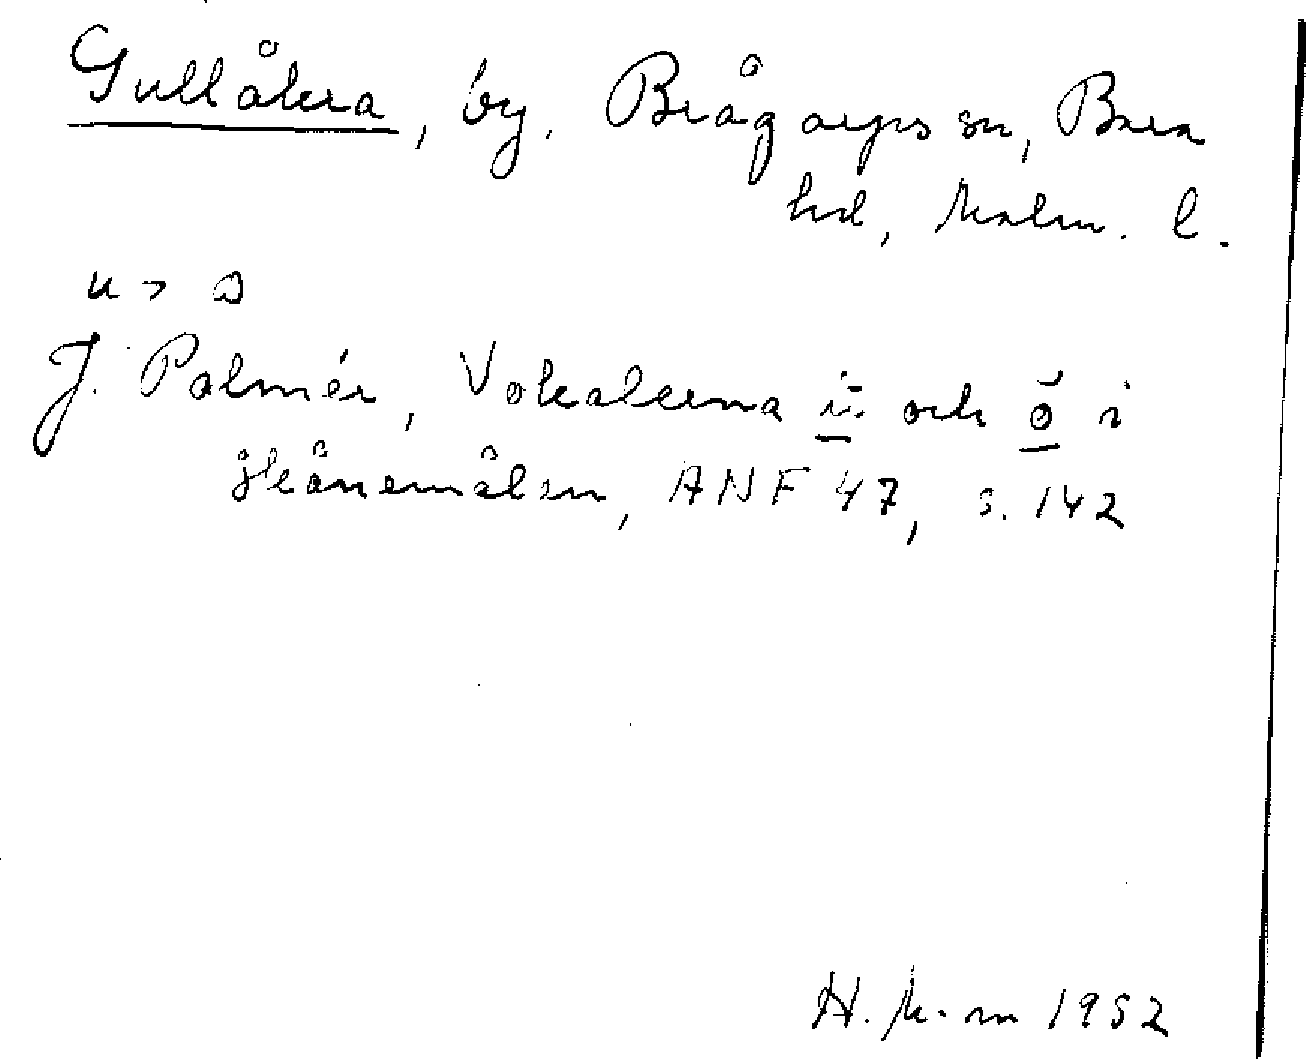 Gullåkra, by, Brågarps sn, Bara
hd, Malm. l.
u >
J. Palmér, Vokalerna ĭ och ŏ i
skånemålen, ANF 47, s. 142
H. 1952